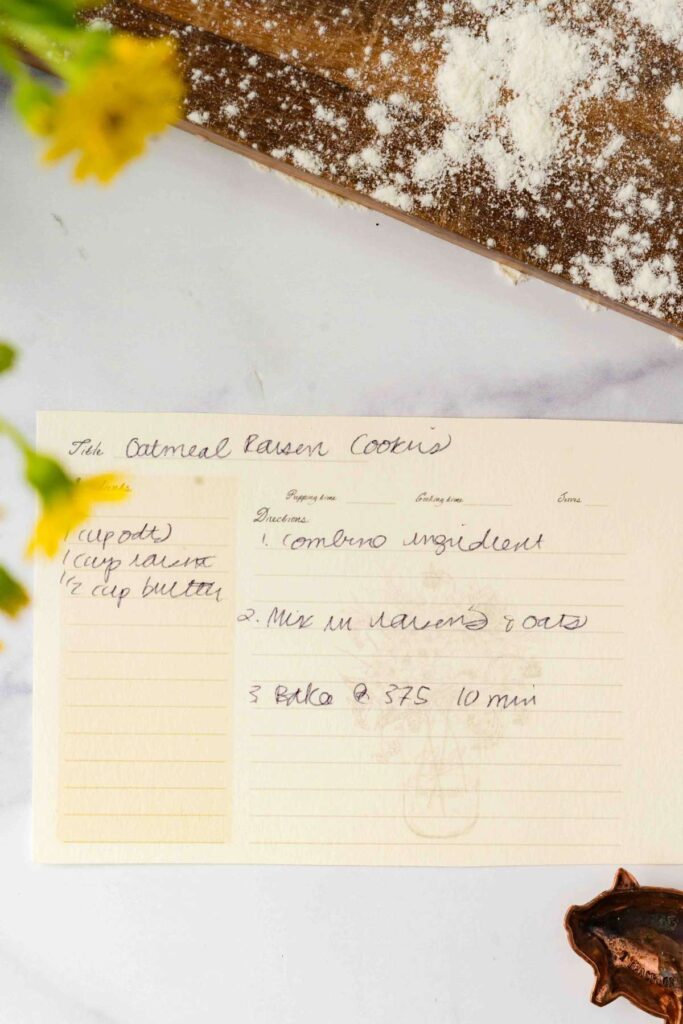 Title Oatmeal Raisen Cookies
Prepping time Cooking time Serves
Directions
1 cup oats
1 cup raisin
1/2 cup butter
1. Combine ingredient
2. Mix in raisens & oats
3 Bake @ 375 10 min